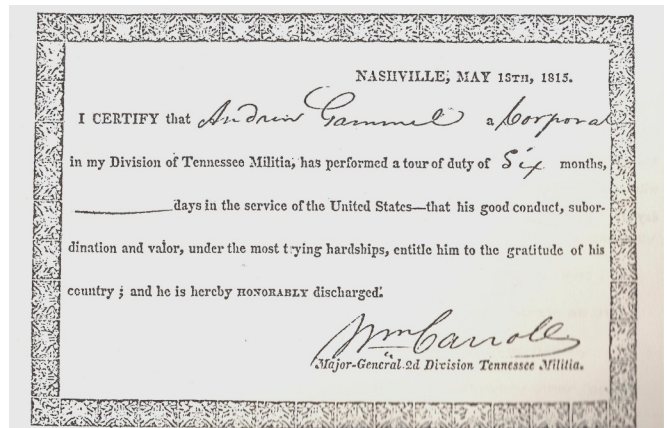 NASHVILLE, MAY 13TH, 1815.
I CERTIFY that Andrew Gammel a Corporal
in my Division of Tennessee Militia, has performed a tour of duty of Six months,
days in the service of the United States—that his good conduct, subor-
dination and valor, under the most trying hardships, entitle him to the gratitude of his
country; and he is hereby HONORABLY discharged.
Wm Carroll
Major-General 2d Division Tennessee Militia.